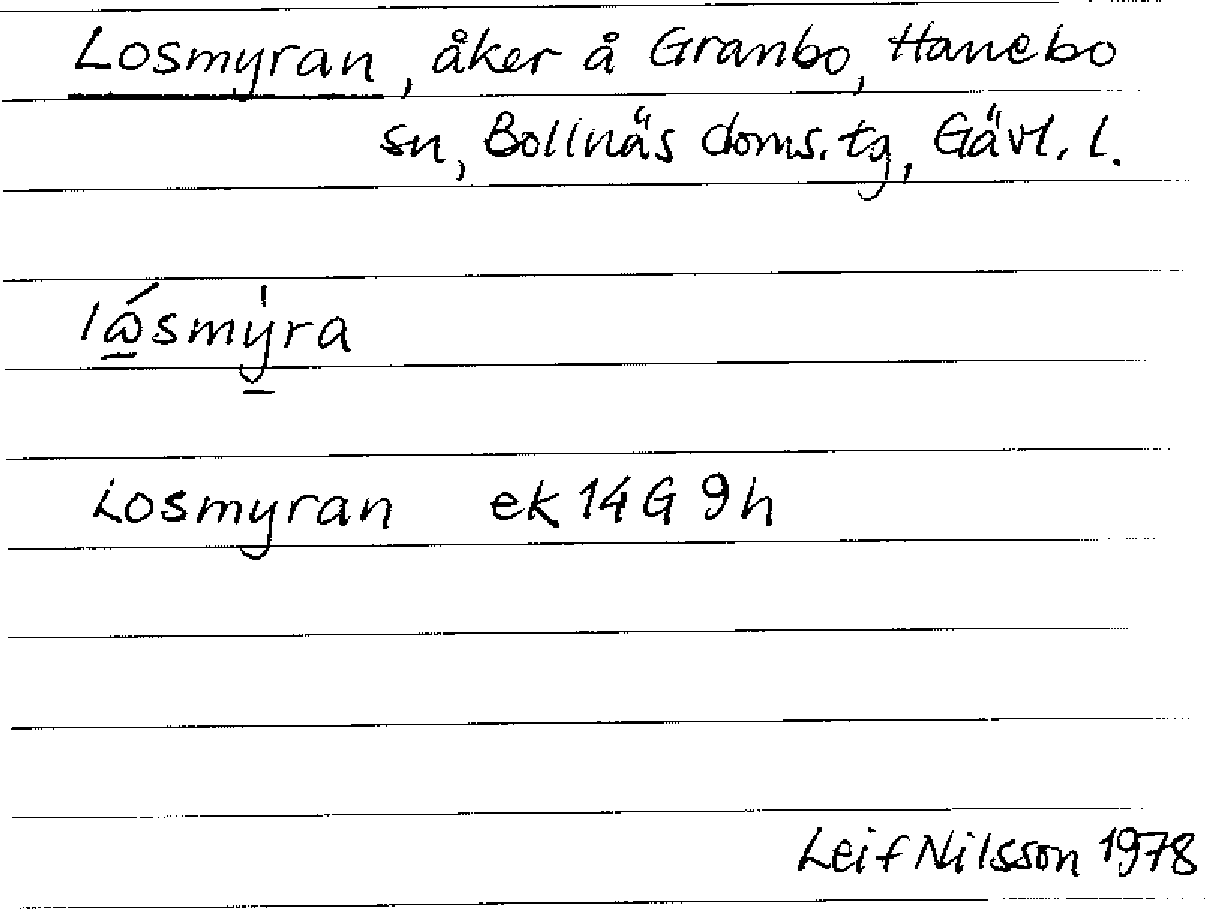 Losmyran, åker å Granbo, Hanebo
sn, Bollnäs doms.tg, Gävl. l.
lώ̲smy̲̍ra
Losmyran ek 14 G 9h
Leif Nilsson 1978